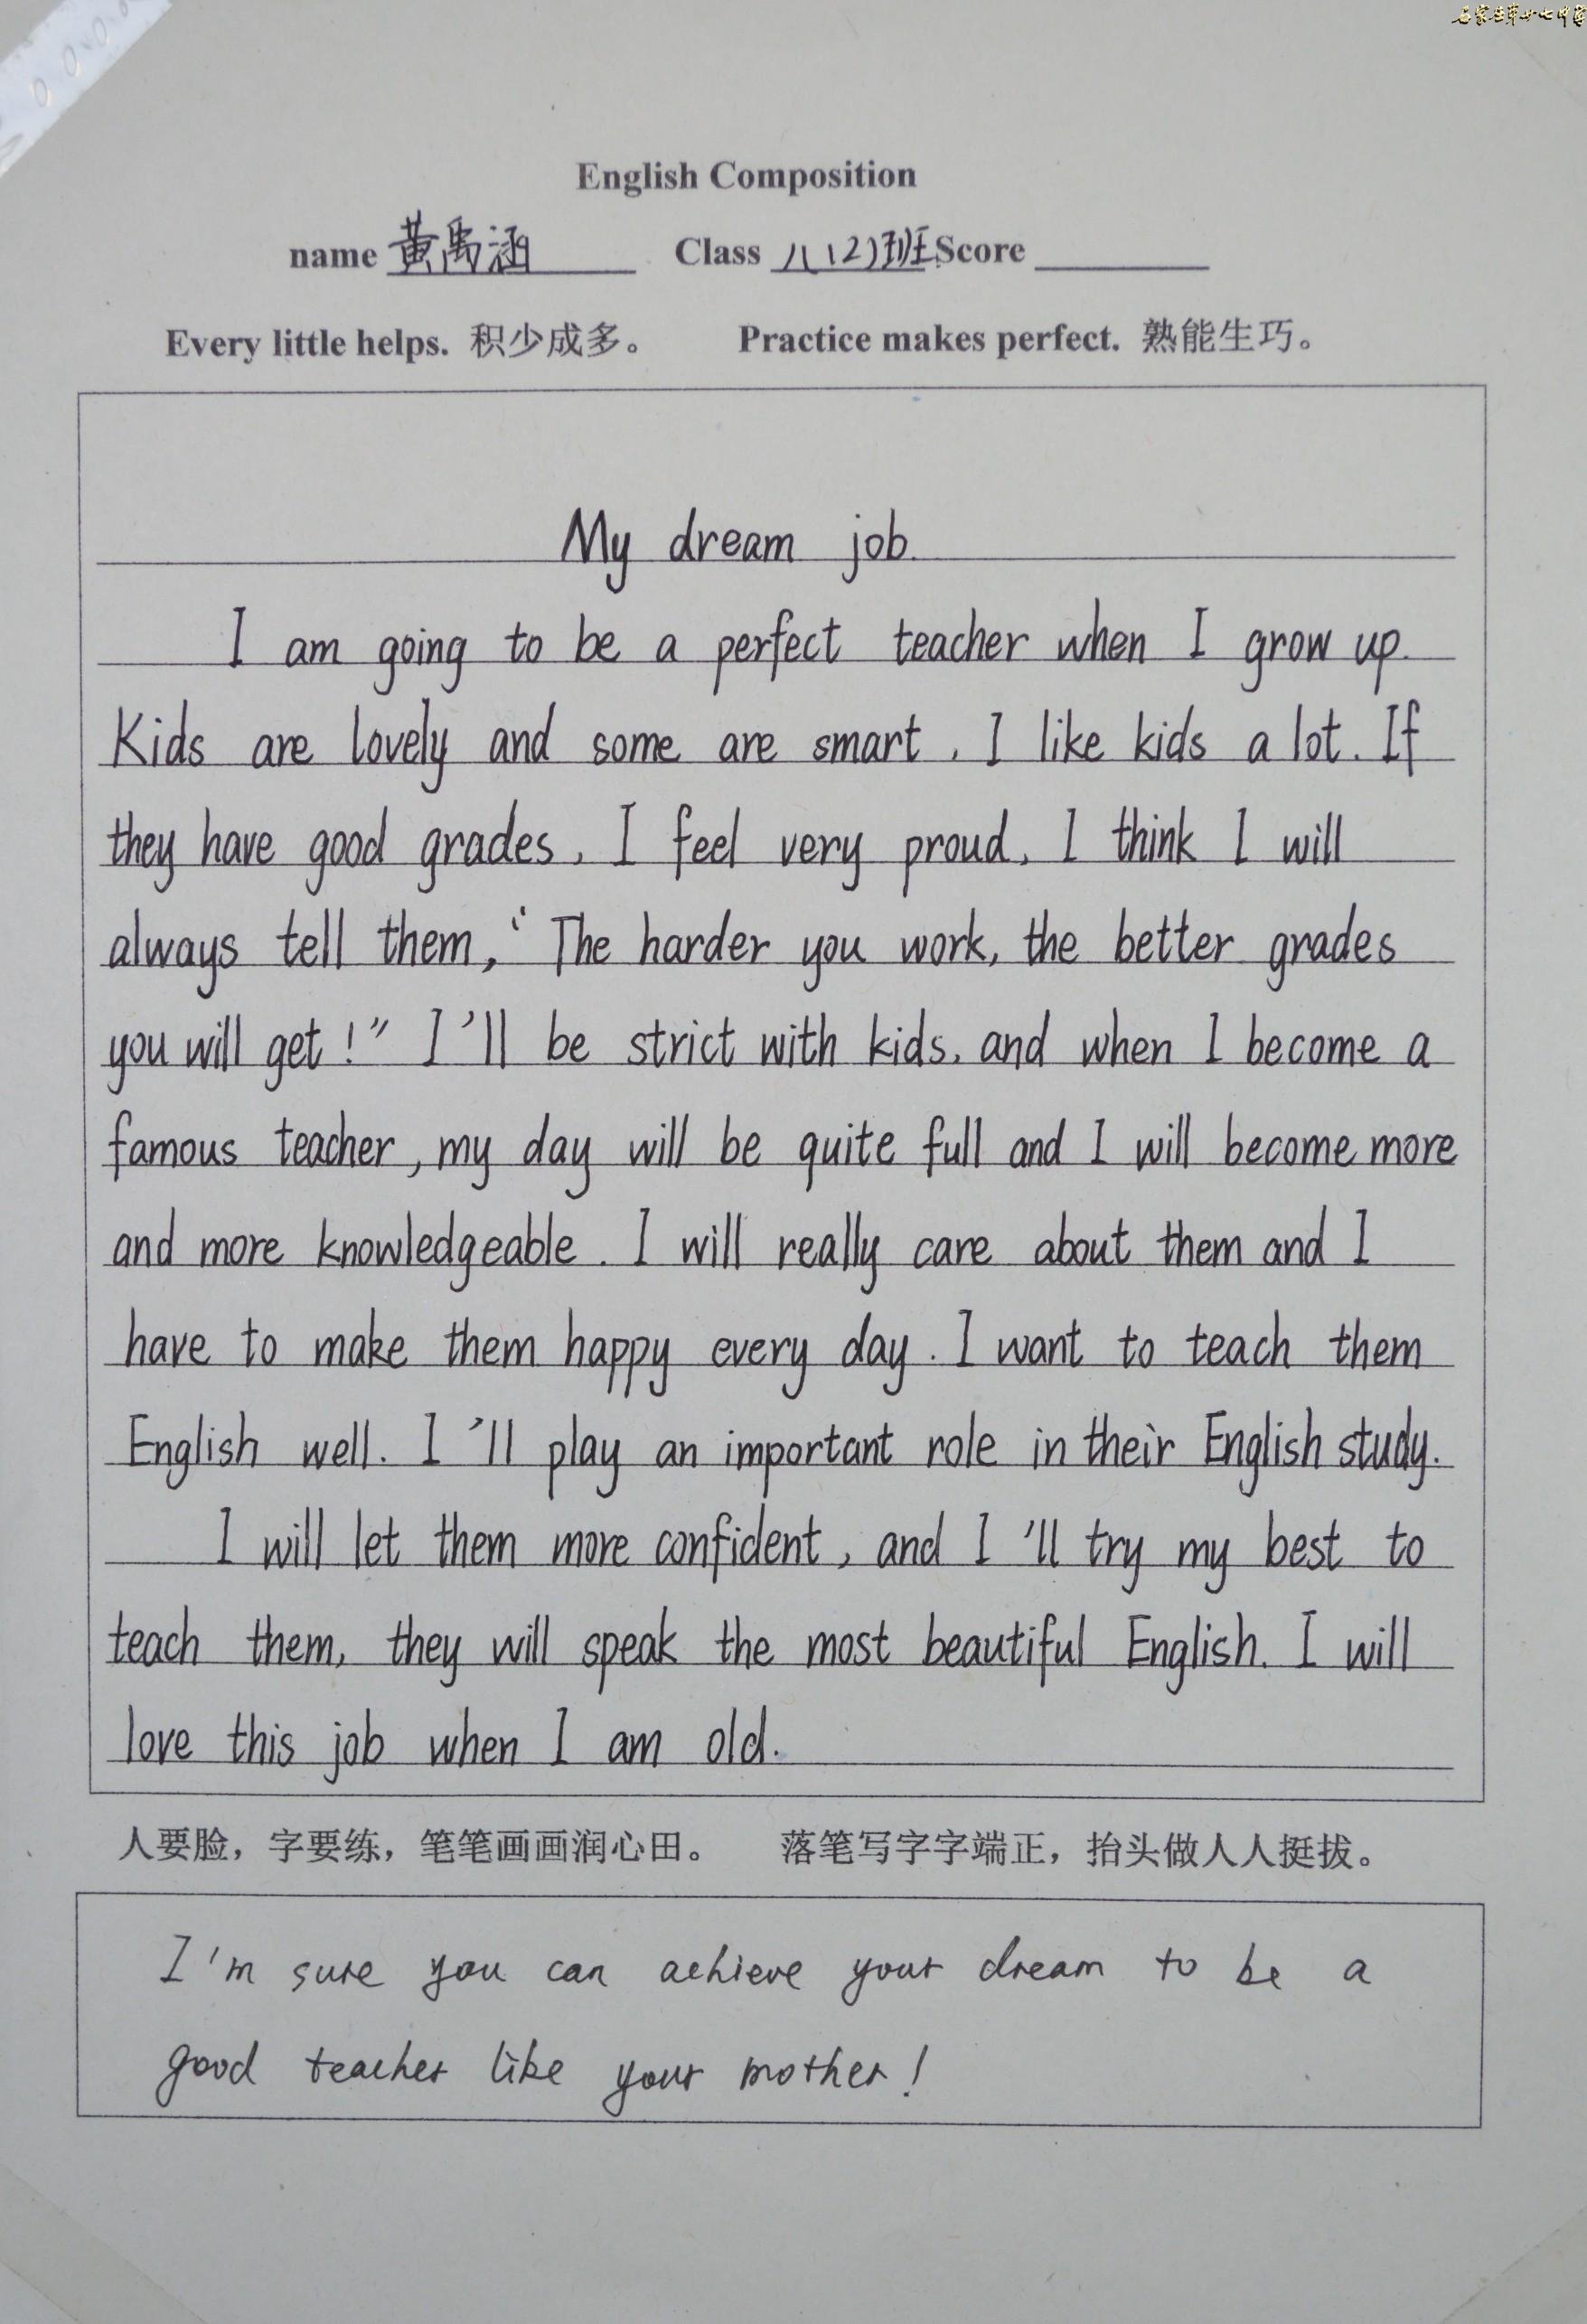 石家庄第十七中学
English Composition
name 黄禹涵 Class 八(2)班 Score
Every little helps. 积少成多。 Practice makes perfect. 熟能生巧。
My dream job.
I am going to be a perfect teacher when I grow up.
Kids are lovely and some are smart. I like kids a lot. If
they have good grades, I feel very proud. I think I will
always tell them, “The harder you work, the better grades
you will get!” I'll be strict with kids, and when I become a
famous teacher, my day will be quite full and I will become more
and more knowledgeable. I will really care about them and I
have to make them happy every day. I want to teach them
English well. I'll play an important role in their English study.
I will let them more confident, and I'll try my best to
teach them, they will speak the most beautiful English. I will
love this job when I am old.
人要脸，字要练，笔笔画画润心田。 落笔写字字端正，抬头做人人挺拔。
I'm sure you can achieve your dream to be a
good teacher like your mother!